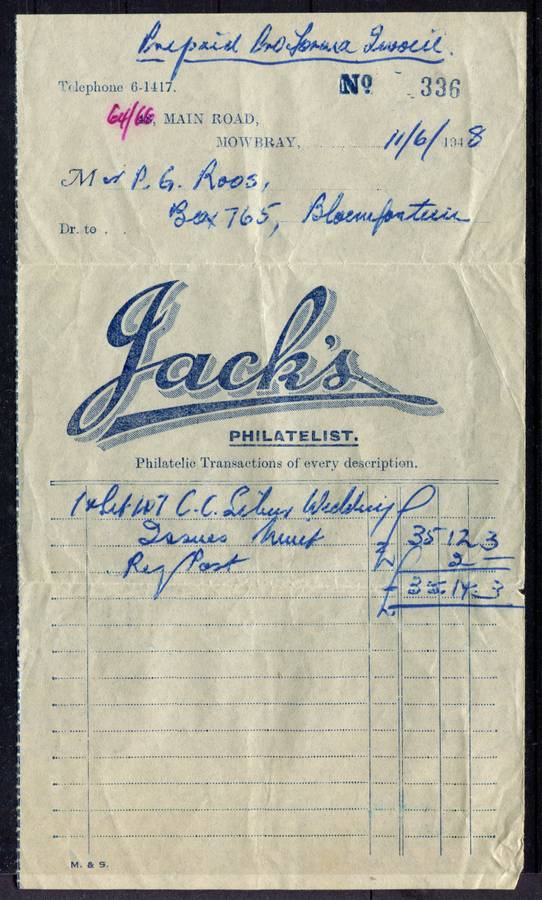 Prepaid Pro Forma Invoice.
Telephone 6-1417. Nº 336
64/66, MAIN ROAD,
MOWBRAY, 11/6/1948
Mr P. G. Roos,
Dr. to . . Box 765, Bloemfontein
Jack's
PHILATELIST.
Philatelic Transactions of every description.
1 Set C.C. Silver Wedding
Issues Mint £ 35 12 3
Reg Post 2 —
£ 35. 14. 3
M. & S.